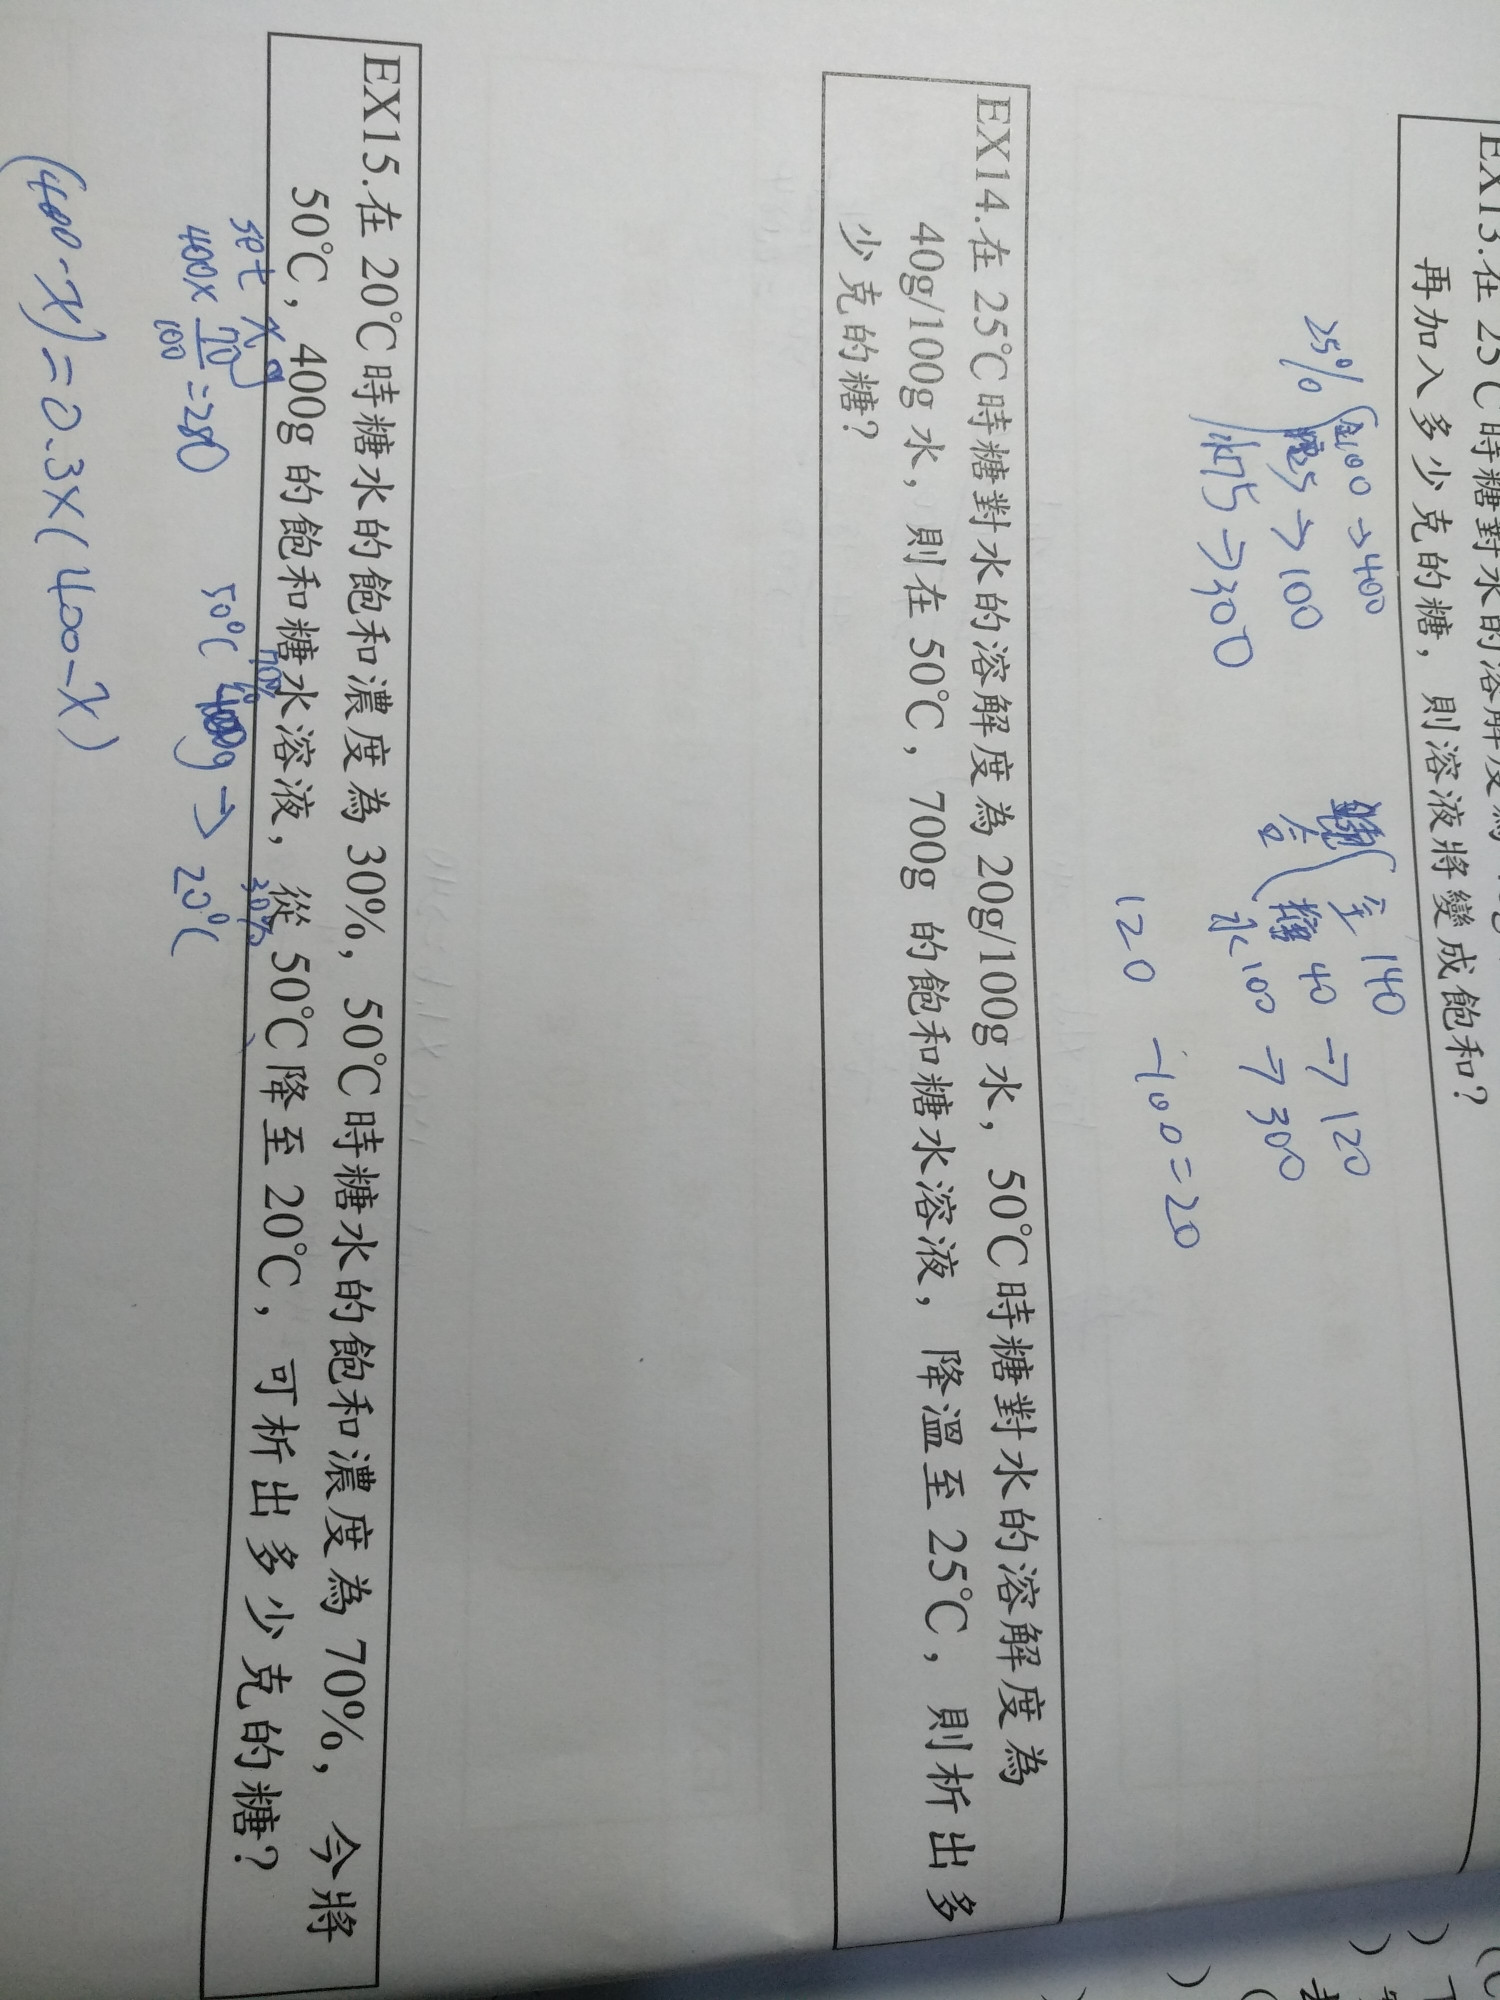 EX13.在 25℃時糖對水的溶解度為
再加入多少克的糖，則溶液將變成飽和？
25%
全100→400
糖25→100
水75→300
全 140
糖 40 → 120
水 100 → 300
120 -100=20
EX14.在 25℃時糖對水的溶解度為 20g/100g 水，50℃時糖對水的溶解度為
40g/100g 水，則在 50℃，700g 的飽和糖水溶液，降溫至 25℃，則析出多
少克的糖？
EX15.在 20℃時糖水的飽和濃度為 30%，50℃時糖水的飽和濃度為 70%，今將
50℃，400g 的飽和糖水溶液，從 50℃降至 20℃，可析出多少克的糖？
set x g
70% 30%
50℃ 400g → 20℃
400× 70/100 =280
(400-x)=0.3×(400-x)